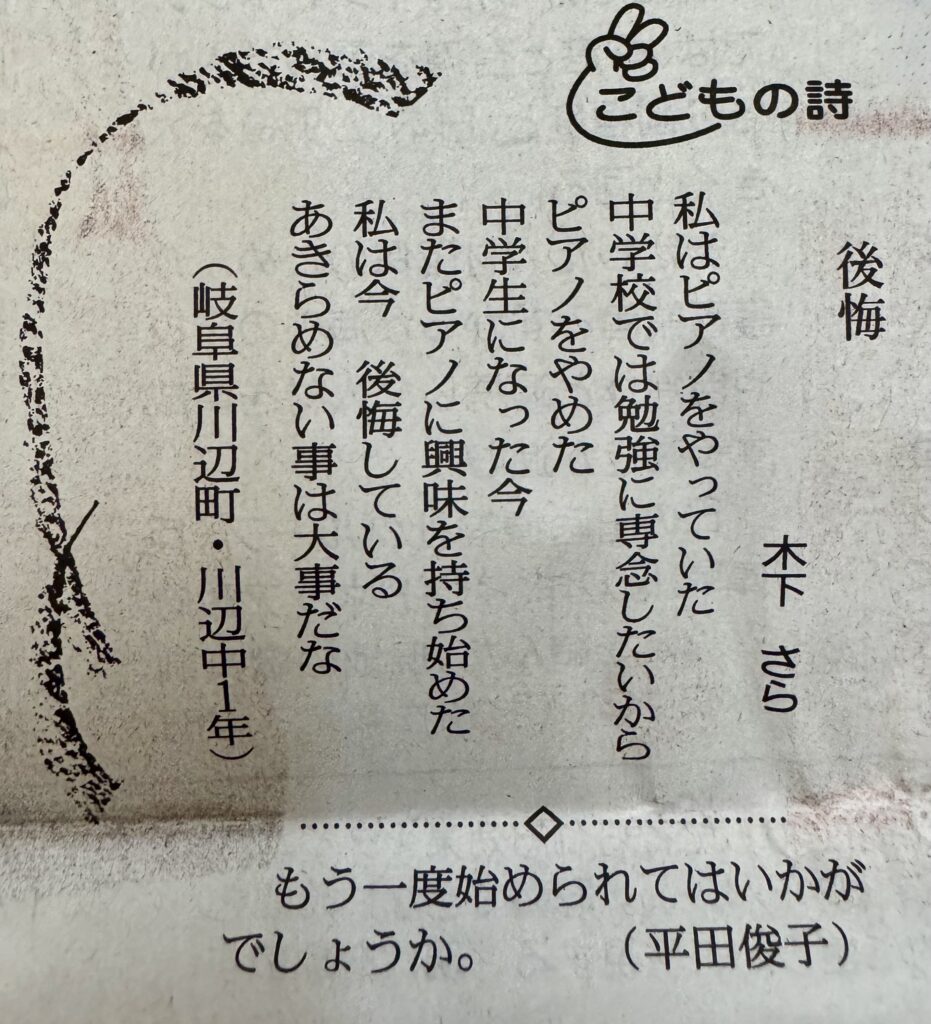 こどもの詩
後悔
木下　さら
私はピアノをやっていた
中学校では勉強に専念したいから
ピアノをやめた
中学生になった今
またピアノに興味を持ち始めた
私は今　後悔している
あきらめない事は大事だな
（岐阜県川辺町・川辺中1年）
もう一度始められてはいかが
でしょうか。　　（平田俊子）